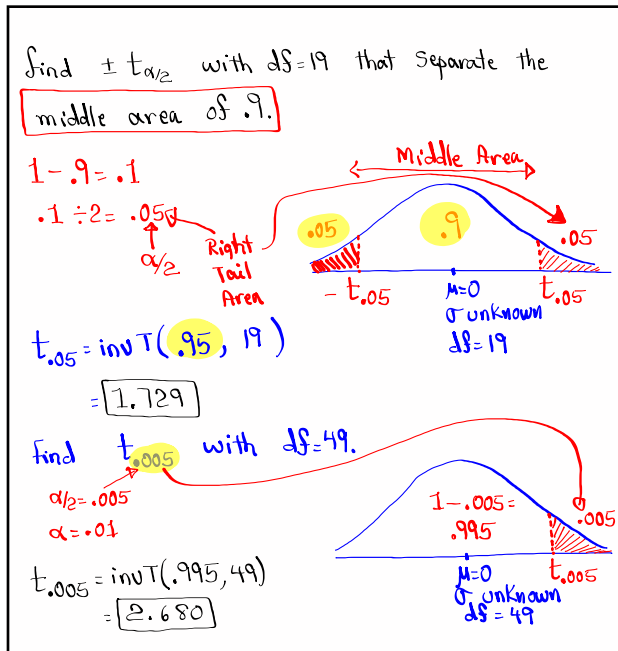 find ± t α/2 with df=19 that separate the
middle area of .9.
1-.9=.1
.1÷2=.05
α/2
Right
Tail
Area
Middle Area
.05
.9
.05
-t.05
μ=0
t.05
σ unknown
df=19
t.05=invT(.95, 19)
=1.729
find t.005 with df=49.
α/2=.005
α=.01
1-.005=
.995
.005
t.005=invT(.995,49)
=2.680
μ=0
t.005
σ unknown
df=49